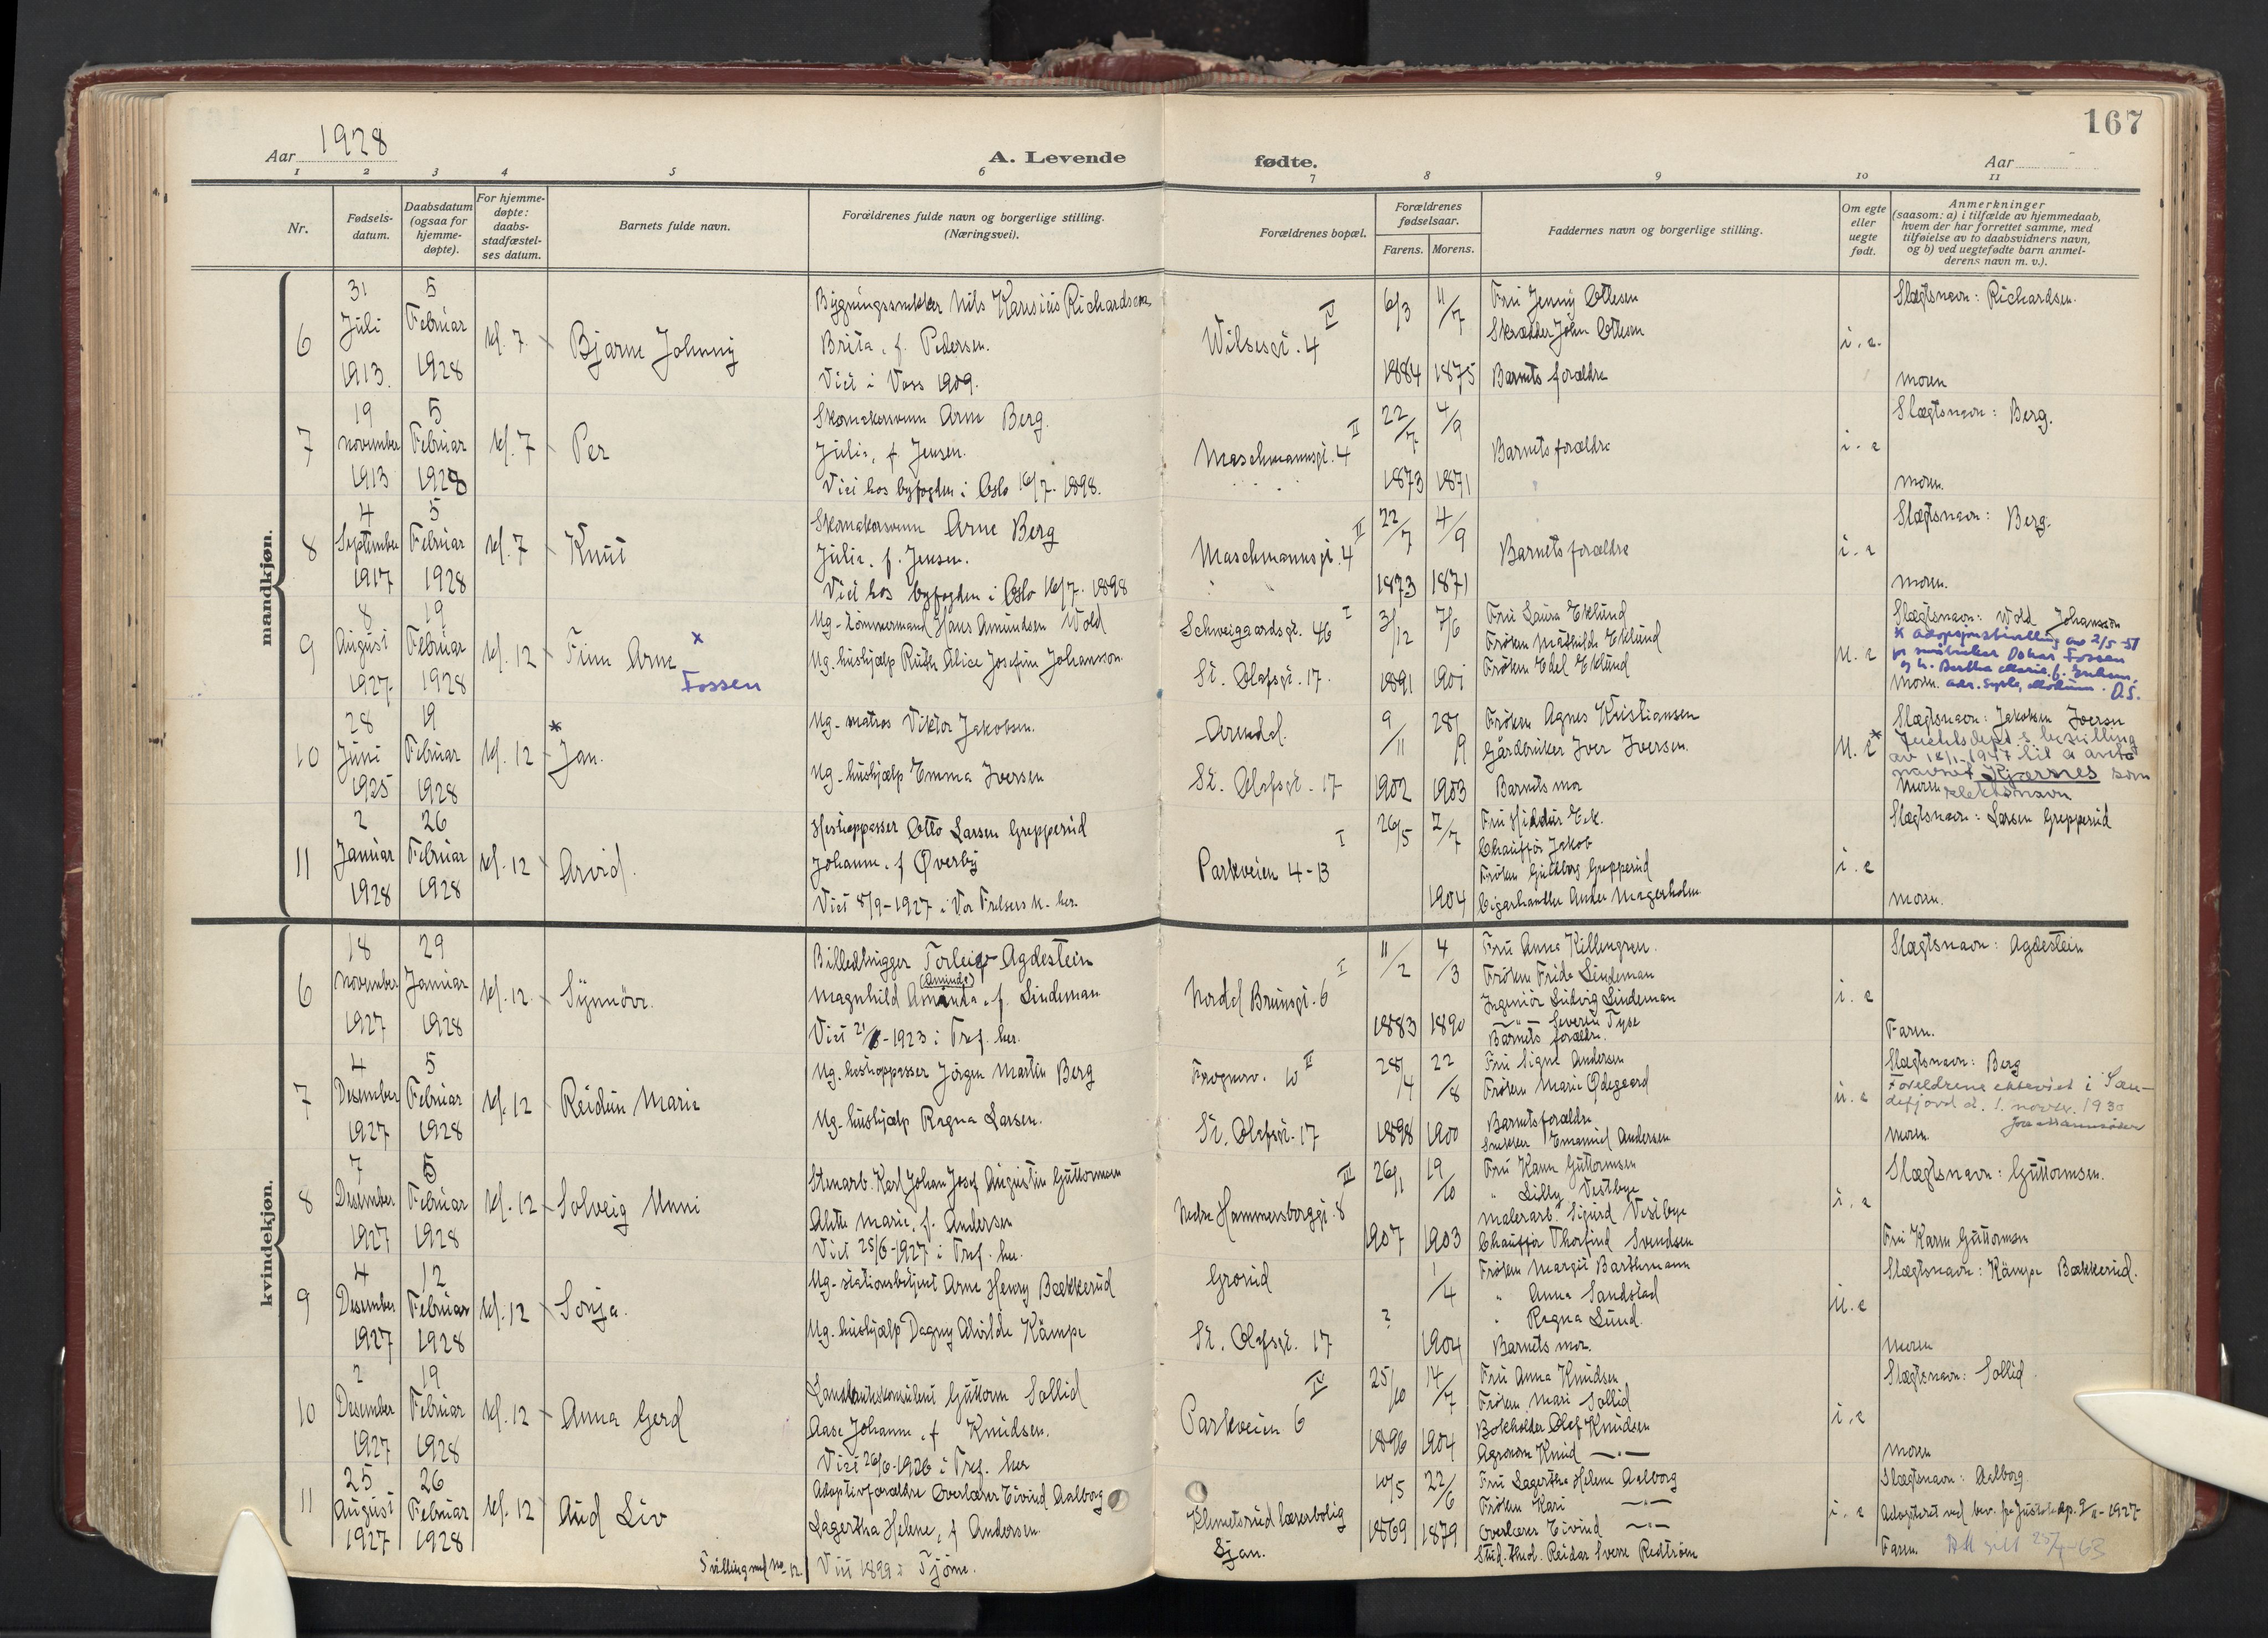 167
Aar 1928
A. Levende fødte.
Aar
1 2 3 4 5 6 7 8 9 10 11
Nr.
Fødsels-
datum.
Daabsdatum
(ogsaa for
hjemme-
døpte).
For hjemme-
døpte:
daabs-
stadfæstel-
ses datum.
Barnets fulde navn.
Forældrenes fulde navn og borgerlige stilling.
(Næringsvei).
Forældrenes bopæl.
Forældrenes
fødselsaar.
Farens. Morens.
Faddernes navn og borgerlige stilling.
Om egte
eller
uegte
født.
Anmerkninger
(saasom: a) i tilfælde av hjemmedaab,
hvem der har forrettet samme, med
tilføielse av to daabsvidners navn,
og b) ved uegtefødte barn anmel-
derens navn m. v.).
mandkjøn.
6
31
Juli
1913.
5
Februar
1928
kl. 7
Bjarne Johnny
Bygningssnekker Nils Karsius Richardsen
Brita, f. Pedersen.
Viet i Voss 1909.
Wilsesgt. 4 IV
6/3
1884
11/7
1875
Fru Jenny Ottesen
Skrædder John Ottesen
Barnets forældre
i. e.
Slægtsnavn: Richardsen.
moren
7
19
november
1913
5
Februar
1928
kl. 7
Per
Skomakersvenn Arne Berg.
Julie, f. Jensen.
Viet hos byfogden i Oslo 16/7. 1898.
Maschmannsgt. 4 II
22/7
1873
4/9
1871
Barnets forældre
i. e
Slægtsnavn: Berg.
moren.
8
4
September
1917
5
Februar
1928
kl. 7
Knut
Skomakersvenn Arne Berg
Julie, f. Jensen.
Viet hos byfogden i Oslo 16/7. 1898
Maschmannsgt. 4 II
22/7
1873
4/9
1871
Barnets forældre
i. e
Slægtsnavn: Berg.
moren.
9
8
August
1927.
19
Februar
1928
kl. 12
Finn Arne x
Fossen
Ug. tömmermand Hans Amundsen Wold
Ug. hushjælp Ruth Alice Josefin Johanson
Schweigaardsgt. 46 I
St. Olafsgt. 17.
3/12
1891
7/6
1901
Fru Laura Eklund
Frøken Mathilde Eklund
Frøken Edel Eklund
u. e
Slægtsnavn: Wold Johansson
x adopsjonsbevilling av 2/5-51
for småbruker Oskar Fossen
og h. Bertha Marie, f.
moren.
10
28
Juni
1925
19
Februar
1928
kl. 12
* Jan.
Ug. matros Viktor Jakobsen.
Ug. hushjælp Emma Iversen
Arendal.
St. Olafsgt. 17
9/11
1902
28/9
1903
Frøken Agnes Kristiansen
Gårdbruker Iver Iversen.
Barnets mor
u. e *
Slægtsnavn: Jakobsen Iversen
Justisdept's bevilling
av 18/1-1947 til å anta
navnet Kjærnes som
slektsnavn
moren
11
2
Januar
1928
26
Februar
1928
kl. 12
Arvid.
Hestepasser Otto Larsen Grepperud
Johanne, f Øverby
Viet 8/9-1927 i Vor Frelsers k. her.
Parkveien 4-B I
26/5
2/7
1904
Fru Hiddur Eek.
Chauffør Jakob
Frøken Guldborg Grepperud
Cigarhandler Anders Magerholm
i. e
Slægtsnavn: Larsen Grepperud
moren.
kvindekjøn.
6
18
november
1927
29
Januar
1928
kl. 12
Synnöve.
Billedhugger Torleif Agdestein
(Aminda)
Magnhild Amanda, f. Lindeman
Viet 21/6-1923 i Tref. her.
Nordal Brunsgt. 6 I
11/2
1883
4/3
1890
Fru Anna Killengreen.
Frøken Frida Lindeman
Ingeniør Ludvig Lindeman
—"— Severin Tyse
Barnets forældre.
i. e
Slægtsnavn: Agdestein
Faren.
7
4
Desember
1927
5
Februar
1928
kl. 12
Reidun Marie
Ug. hestepasser Jörgen Martin Berg
Ug. hushjælp Ragna Larsen.
Frognerv. 10 II
St. Olafsgt. 17
28/4
1898
22/8
1900
Fru Signe Andersen
Frøken Marie Ødegaard
Barnets forældre
Snekker Emanuel Andersen
u. e
Slægtsnavn: Berg
Foreldrene ekteviet i San-
defjord d. 1. novbr. 1930
moren.
8
7
Desember
1927
5
Februar
1928
kl. 12
Solveig Unni
Stenarb. Karl Johan Josef Augustin Guttormsen
Alette Marie, f. Andersen
Viet 25/6-1927 i Tref. her.
Nedre Hammersborggt. 8 III
26/11
1907
19/10
1903
Fru Karen Guttormsen
" Lilly Vestbye
Malerarb. Sigurd Vestbye
Chauffør Thorfind Svendsen
i. e
Slægtsnavn: Guttormsen.
Fru Karen Guttormsen
9
4
Desember
1927
12
Februar
1928
kl. 12
Sonja.
Ug. stationsbetjent Arne Henry Bækkerud
Ug. hushjælp Dagny Alvilde Kämpe
Grorud
St. Olafsgt. 17
?
1/4
1904
Frøken Margit Barthmann
" Anna Sandstad
" Ragna Lund.
Barnets mor.
u. e
Slægtsnavn: Kämpe Bækkerud.
moren
10
2
Desember
1927
19
Februar
1928
kl. 12
Anna Gerd
Landbrukskonsulent Guttorm Sollid
Aase Johanne, f Knudsen.
Viet 26/6-1926 i Tref. her
Parkveien 6 IV
25/10
1896
14/7
1904
Fru Anna Knudsen
Frøken Mari Sollid
Bokholder Olef Knudsen
Agronom Knud —"—
i. e
Slægtsnavn: Sollid.
moren
11
25
August
1927
26
Februar
1928
kl. 12
Aud Liv
Tvilling med no 12.
Adoptivforældre Overlærer Eivind Aalborg
Lagertha Helene, f Andersen
Viet 1899 i Tjöme.
Klemetsrud lærerbolig
Ljan.
10/5
1869
22/6
1879
Fru Lagertha Helene Aalborg
Frøken Kari —"—
Overlærer Eivind —"—
Stud. theol. Reidar Sverre Redtrøen
i. e
Slægtsnavn: Aalborg.
Adoptert ved bev. fra Justisdep. 9/11-1927
Faren.